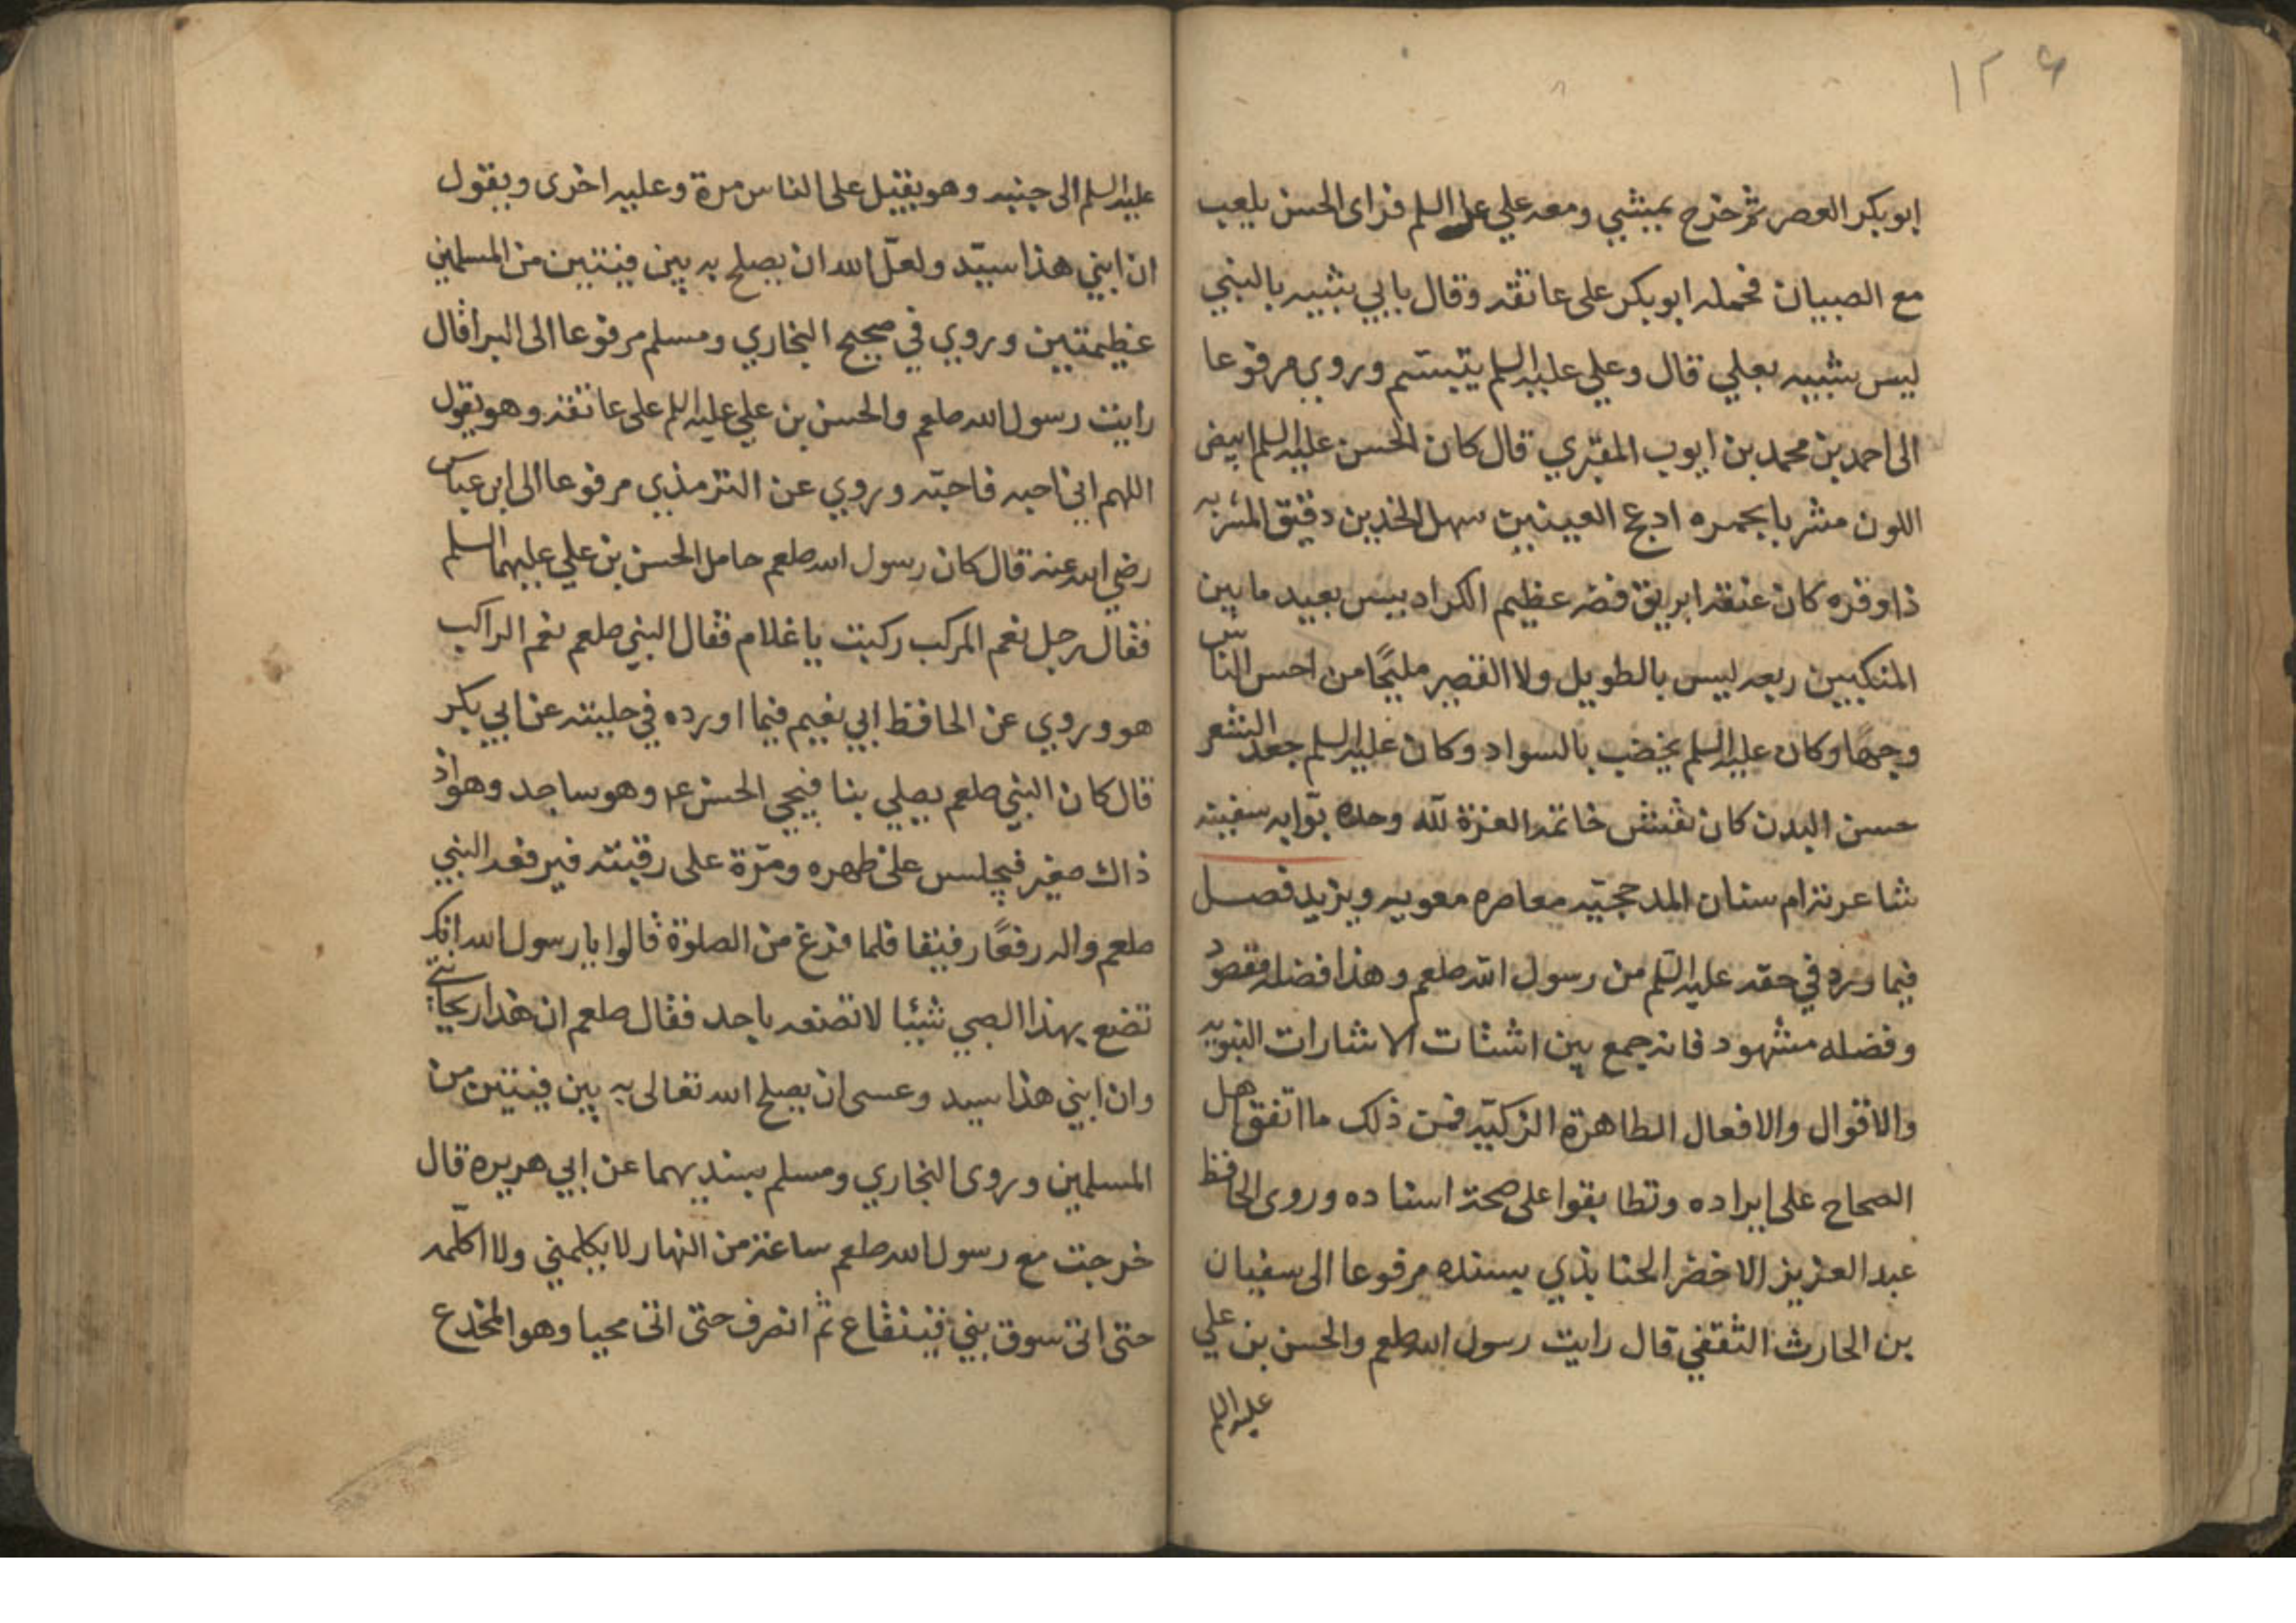 ١٢٦
ابو بكر العصر ثم خرج يمشي ومعه علي عليه السلم فراى الحسن يلعب
مع الصبيان فحمله ابو بكر على عاتقه وقال بابي شبيه بالنبي
ليس شبيه بعلي قال وعلي عليه السلم يتبسم وروي مرفوعا
الى احمد بن محمد بن ايوب المقبري قال كان الحسن عليه السلم ابيض
اللون مشربا بحمره ادعج العينين سهل الخدين دقيق المسربه
ذا وفره كان عنقه ابريق فضه عظيم الكراديس بعيد ما بين
المنكبين ربعه ليس بالطويل ولا القصير مليحًا من احسن الناس
وجهًا وكان عليه السلم يخضب بالسواد وكان عليه السلم جعد الشعر
حسن البدن كان نقش خاتمه العزة لله وحده بوّابه سفينه
شاعرته ام سنان المدحجيّه معاصره معويه ويزيد فصل
فيما ورد في حقه عليه السّلم من رسول الله صلعم وهذا فضله مقصود
وفضله مشهود فانه جمع بين اشتات الاشارات النبويه
والاقوال والافعال الطاهرة الزكيّه فمن ذلك ما اتفق اهل
الصحاح على ايراده وتطابقوا على صحة اسناده وروى الحافظ
عبد العزيز الاخضر الجنابذي بسنده مرفوعا الى سفيان
بن الحارث الثقفي قال رايت رسول الله صلعم والحسن بن علي
عليه السلم
عليه السلم الى جنبه وهو يقبل على الناس مرة وعليه اخرى ويقول
ان ابني هذا سيّد ولعلّ الله ان يصلح به بين فيتين من المسلمين
عظيمتين وروي في صحيح البخاري ومسلم مرفوعا الى البرا قال
رايت رسول الله صلعم والحسن بن علي عليه السلم على عاتقه وهو يقول
اللهم اني احبه فاحبّه وروي عن الترمذي مرفوعا الى ابن عباس
رضي الله عنه قال كان رسول الله صلعم حامل الحسن بن علي عليهما السلم
فقال رجل نعم المركب ركبت يا غلام فقال النبي صلعم نعم الراكب
هو وروي عن الحافظ ابي نعيم فيما اورده في حليته عن ابي بكر
قال كان النبي صلعم يصلي بنا فيجي الحسن ع م وهو ساجد وهو اذ
ذاك صغير فيجلس على ظهره ومرّة على رقبته فيرفعه النبي
صلعم واله رفعًا رفيقا فلما فرغ من الصلوة قالوا يا رسول الله انك
تضع بهذا الصبي شيئا لا تصنعه باحد فقال صلعم ان هذا ريحانتي
وان ابني هذا سيد وعسى ان يصلح الله تعالى به بين فيتين من
المسلمين وروى البخاري ومسلم بسنديهما عن ابي هريره قال
خرجت مع رسول الله صلعم ساعة من النهار لا يكلمني ولا اكلّمه
حتى اتى سوق بني قينقاع ثم انصرف حتى اتى محيا وهو المخدع